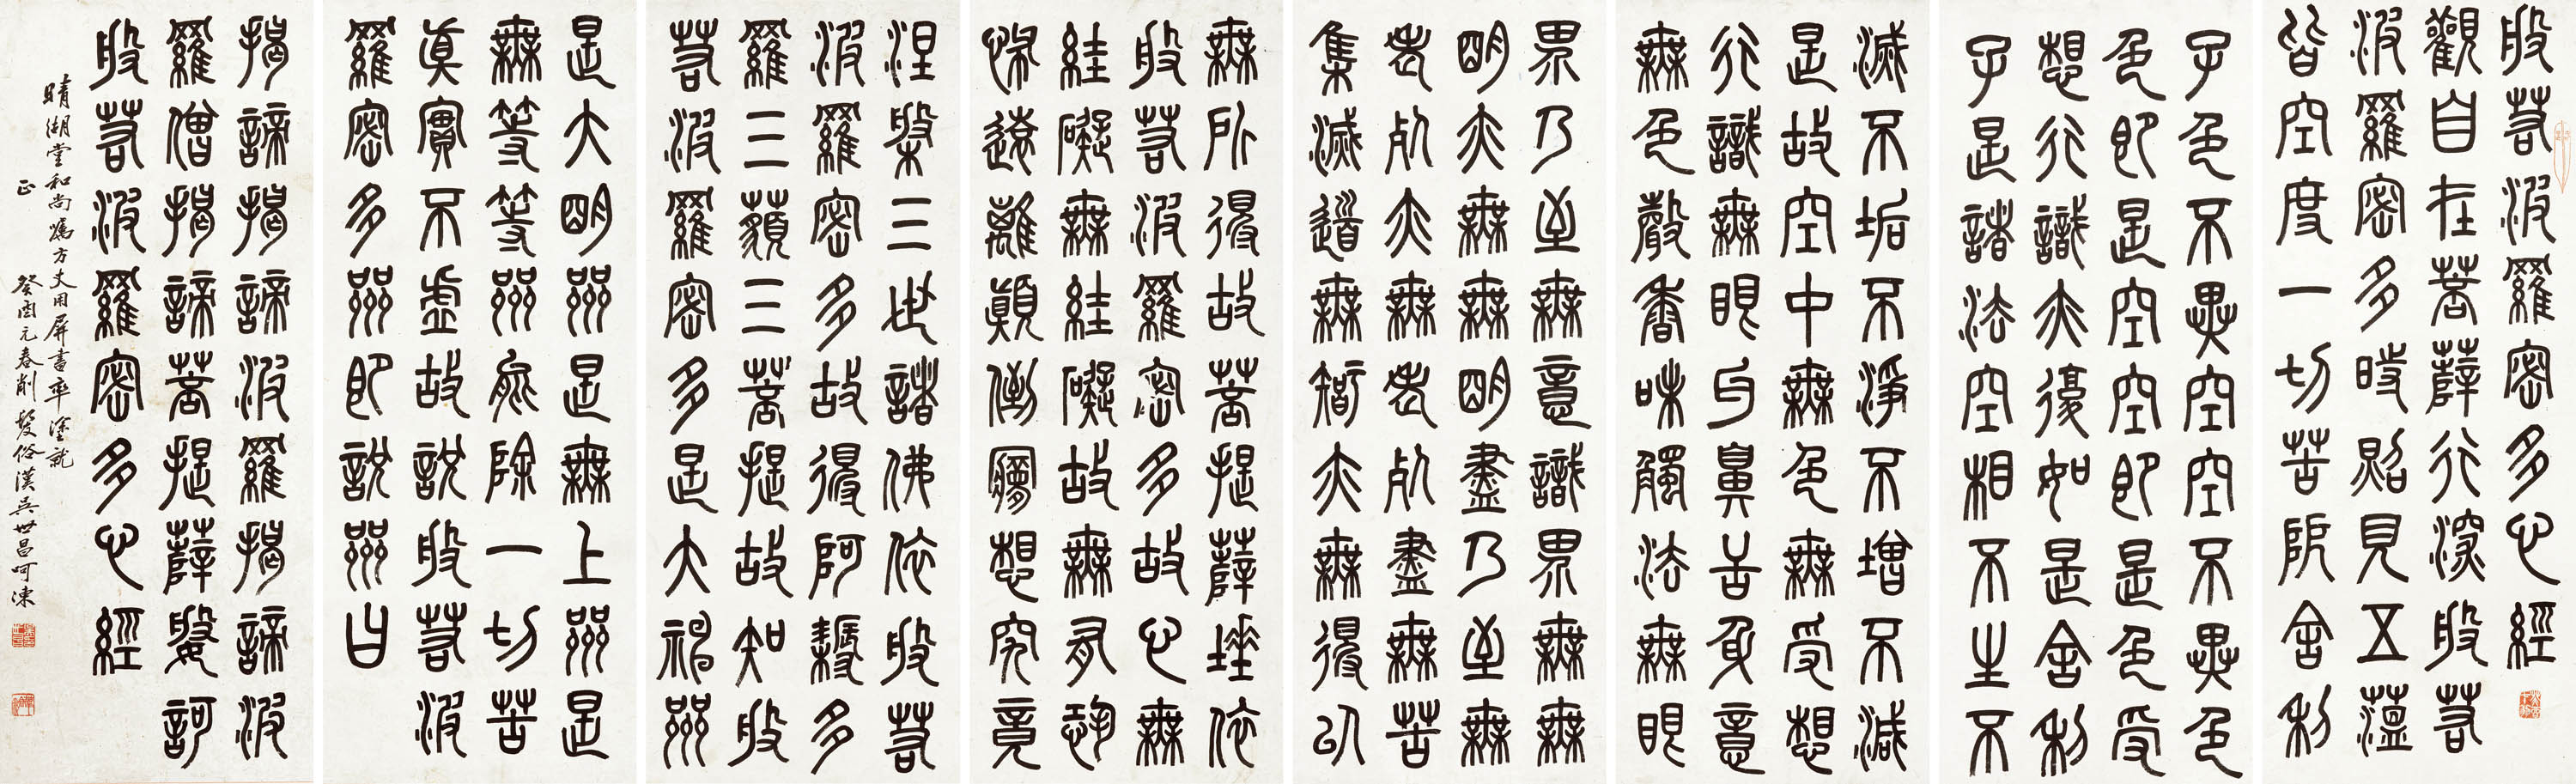 般若波羅密多心經
觀自在菩薩行深般若
波羅密多時照見五蘊
皆空度一切苦厄舍利
子色不異空空不異色
色即是空空即是色受
想行識亦復如是舍利
子是諸法空相不生不
滅不垢不淨不增不減
是故空中無色無受想
行識無眼耳鼻舌身意
無色聲香味觸法無眼
界乃至無意識界無無
明亦無無明盡乃至無
老死亦無老死盡無苦
集滅道無智亦無得以
無所得故菩提薩埵依
般若波羅密多故心無
絓礙無絓礙故無有恐
怖遠離顛倒夢想究竟
涅槃三世諸佛依般若
波羅密多故得阿耨多
羅三藐三菩提故知般
若波羅密多是大神咒
是大明咒是無上咒是
無等等咒能除一切苦
真實不虛故說般若波
羅密多咒即說咒曰
揭諦揭諦波羅揭諦波
羅僧揭諦菩提薩婆訶
般若波羅密多心經
晴湖堂和尚屬方丈用屏書率塗就
正
癸酉元春削髮俗漢吳世昌呵凍